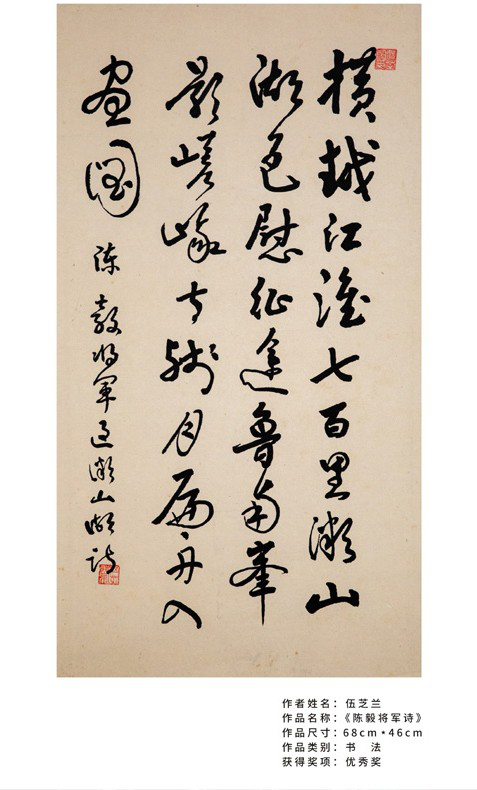 横越江淮七百里微山
湖色慰征途魯南峯
影嵯峨甚残月扁舟入
畫圖
陳毅將軍過微山湖詩
作者姓名：伍芝兰
作品名称：《陈毅将军诗》
作品尺寸：68cm*46cm
作品类别：书 法
获得奖项：优秀奖